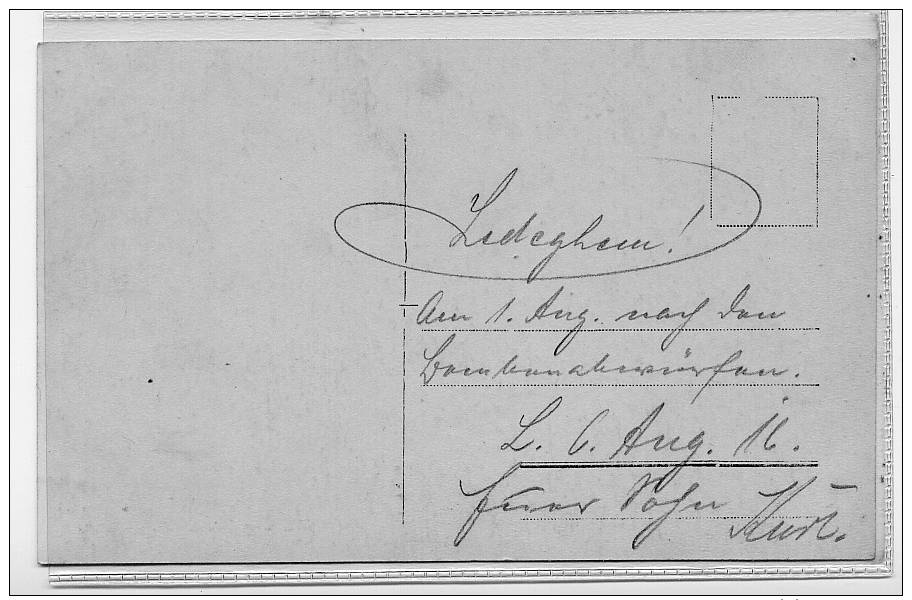 Ledeghem!
Am 1. Aug. nach den
Bombenabwürfen.
L. 6. Aug. 16.
Euer Sohn Kurt.